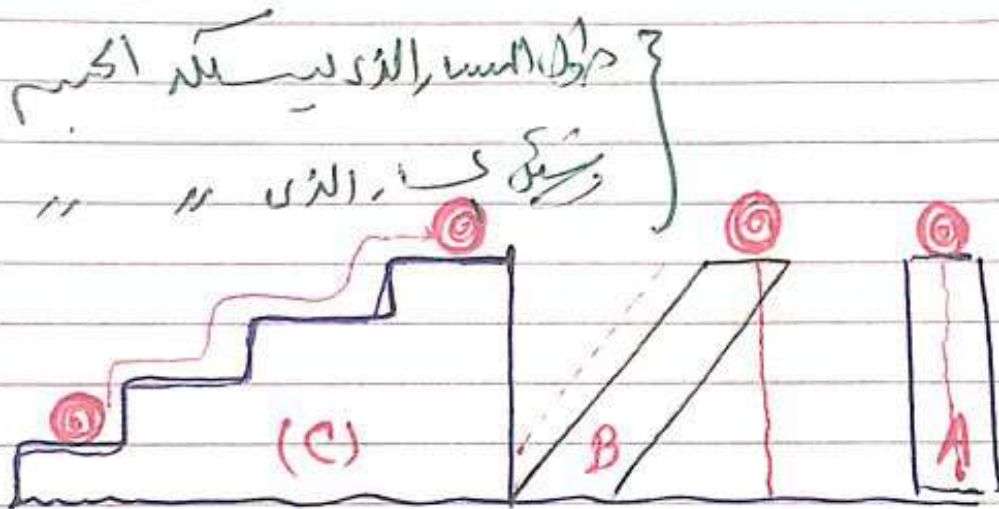 طول المسار الذى يسلكه الجسم
وشكل المسار الذى 〃 〃
(C)
B
A